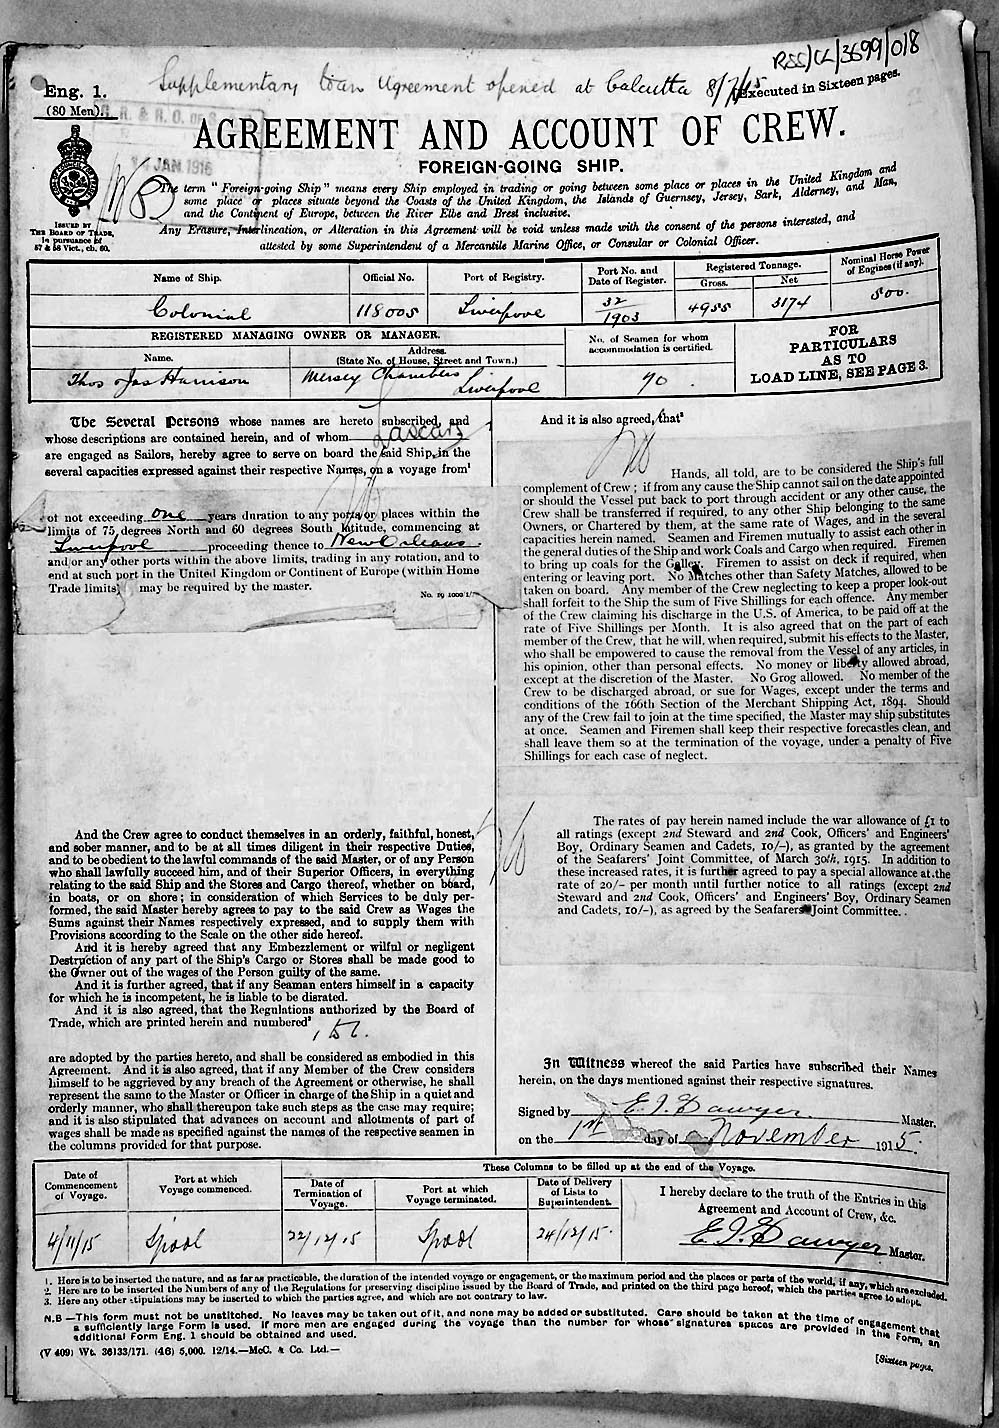 RSS/CL/3699/018
Supplementary Loan Agreement opened at Calcutta 8/7/15
Eng. 1.
(80 Men).
Executed in Sixteen pages.
JAN 1916
AGREEMENT AND ACCOUNT OF CREW.
FOREIGN-GOING SHIP.
The term "Foreign-going Ship" means every Ship employed in trading or going between some place or places in the United Kingdom and
some place or places situate beyond the Coasts of the United Kingdom, the Islands of Guernsey, Jersey, Sark, Alderney, and Man,
and the Continent of Europe, between the River Elbe and Brest inclusive.
Any Erasure, Interlineation, or Alteration in this Agreement will be void unless made with the consent of the persons interested, and
attested by some Superintendent of a Mercantile Marine Office, or Consular or Colonial Officer.
ISSUED BY
THE BOARD OF TRADE,
in pursuance of
57 & 58 Vict., ch. 60.
Name of Ship. Official No. Port of Registry. Port No. and Date of Register. Registered Tonnage. Gross. Net Nominal Horse Power of Engines (if any).
Colonial 118005 Liverpool 32/1903 4955 3174 500.
REGISTERED MANAGING OWNER OR MANAGER.
Name. Address. (State No. of House, Street and Town.)
No. of Seamen for whom accommodation is certified.
FOR
PARTICULARS
AS TO
LOAD LINE, SEE PAGE 3.
Thos & Jas Harrison Mersey Chambers Liverpool 70.
The Several Persons whose names are hereto subscribed, and
whose descriptions are contained herein, and of whom Lascars
are engaged as Sailors, hereby agree to serve on board the said Ship, in the
several capacities expressed against their respective Names, on a voyage from¹
of not exceeding one years duration to any ports or places within the
limits of 75 degrees North and 60 degrees South latitude, commencing at
Liverpool proceeding thence to New Orleans.
and/or any other ports within the above limits, trading in any rotation, and to
end at such port in the United Kingdom or Continent of Europe (within Home
Trade limits) may be required by the master.
No. 19 1000 1/
And the Crew agree to conduct themselves in an orderly, faithful, honest,
and sober manner, and to be at all times diligent in their respective Duties,
and to be obedient to the lawful commands of the said Master, or of any Person
who shall lawfully succeed him, and of their Superior Officers, in everything
relating to the said Ship and the Stores and Cargo thereof, whether on board,
in boats, or on shore; in consideration of which Services to be duly per-
formed, the said Master hereby agrees to pay to the said Crew as Wages the
Sums against their Names respectively expressed, and to supply them with
Provisions according to the Scale on the other side hereof.
And it is hereby agreed that any Embezzlement or wilful or negligent
Destruction of any part of the Ship's Cargo or Stores shall be made good to
the Owner out of the wages of the Person guilty of the same.
And it is further agreed, that if any Seaman enters himself in a capacity
for which he is incompetent, he is liable to be disrated.
And it is also agreed, that the Regulations authorized by the Board of
Trade, which are printed herein and numbered²
are adopted by the parties hereto, and shall be considered as embodied in this
Agreement. And it is also agreed, that if any Member of the Crew considers
himself to be aggrieved by any breach of the Agreement or otherwise, he shall
represent the same to the Master or Officer in charge of the Ship in a quiet and
orderly manner, who shall thereupon take such steps as the case may require;
and it is also stipulated that advances on account and allotments of part of
wages shall be made as specified against the names of the respective seamen in
the columns provided for that purpose.
And it is also agreed, that³
Hands, all told, are to be considered the Ship's full
complement of Crew; if from any cause the Ship cannot sail on the date appointed
or should the Vessel put back to port through accident or any other cause, the
Crew shall be transferred if required, to any other Ship belonging to the same
Owners, or Chartered by them, at the same rate of Wages, and in the several
capacities herein named. Seamen and Firemen mutually to assist each other in
the general duties of the Ship and work Coals and Cargo when required. Firemen
to bring up coals for the Galley. Firemen to assist on deck if required, when
entering or leaving port. No Matches other than Safety Matches, allowed to be
taken on board. Any member of the Crew neglecting to keep a proper look-out
shall forfeit to the Ship the sum of Five Shillings for each offence. Any member
of the Crew claiming his discharge in the U.S. of America, to be paid off at the
rate of Five Shillings per Month. It is also agreed that on the part of each
member of the Crew, that he will, when required, submit his effects to the Master,
who shall be empowered to cause the removal from the Vessel of any articles, in
his opinion, other than personal effects. No money or liberty allowed abroad,
except at the discretion of the Master. No Grog allowed. No member of the
Crew to be discharged abroad, or sue for Wages, except under the terms and
conditions of the 166th Section of the Merchant Shipping Act, 1894. Should
any of the Crew fail to join at the time specified, the Master may ship substitutes
at once. Seamen and Firemen shall keep their respective forecastles clean, and
shall leave them so at the termination of the voyage, under a penalty of Five
Shillings for each case of neglect.
The rates of pay herein named include the war allowance of £1 to
all ratings (except 2nd Steward and 2nd Cook, Officers' and Engineers'
Boy, Ordinary Seamen and Cadets, 10/-), as granted by the agreement
of the Seafarers' Joint Committee, of March 30th, 1915. In addition to
these increased rates, it is further agreed to pay a special allowance at the
rate of 20/- per month until further notice to all ratings (except 2nd
Steward and 2nd Cook, Officers' and Engineers' Boy, Ordinary Seamen
and Cadets, 10/-), as agreed by the Seafarers' Joint Committee.
In Witness whereof the said Parties have subscribed their Names
herein, on the days mentioned against their respective signatures.
Signed by E. J. Sawyer Master.
on the 1st day of November 1915.
These Columns to be filled up at the end of the Voyage.
Date of Commencement of Voyage. Port at which Voyage commenced. Date of Termination of Voyage. Port at which Voyage terminated. Date of Delivery of Lists to Superintendent.
I hereby declare to the truth of the Entries in this
Agreement and Account of Crew, &c.
4/11/15 L'pool 22/12/15 L'pool 24/12/15.
E. J. Sawyer Master.
1. Here is to be inserted the nature, and as far as practicable, the duration of the intended voyage or engagement, or the maximum period and the places or parts of the world, if any, which are excluded.
2. Here are to be inserted the Numbers of any of the Regulations for preserving discipline issued by the Board of Trade, and printed on the third page hereof, which the parties agree to adopt.
3. Here any other stipulations may be inserted to which the parties agree, and which are not contrary to law.
N.B—This form must not be unstitched. No leaves may be taken out of it, and none may be added or substituted. Care should be taken at the time of engagement that
a sufficiently large Form is used. If more men are engaged during the voyage than the number for whose signatures spaces are provided in this Form, an
additional Form Eng. 1 should be obtained and used.
(V 409) Wt. 36133/171. (46) 5,000. 12/14.—McC. & Co. Ltd.—
[Sixteen pages.